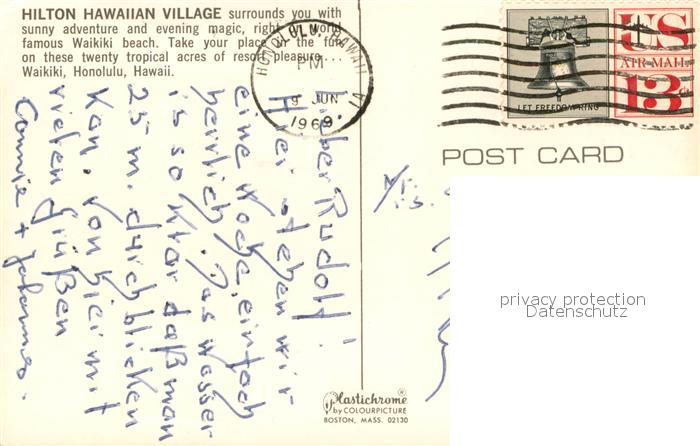 HILTON HAWAIIAN VILLAGE surrounds you with
sunny adventure and evening magic, right on world
famous Waikiki beach. Take your place in the fun
on these twenty tropical acres of resort pleasure...
Waikiki, Honolulu, Hawaii.
HONOLULU, HAWAII
PM
9 JUN
1969
1A
LET FREEDOM RING
US
AIR MAIL
13c
POST CARD
Lieber Rudolf!
Hier stehen wir
eine Woche, einfach
herrlich. Das Wasser
is so klar daß man
25 m. durchblicken
kan. von hier mit
vielen Grüßen
Connie + Johannes.
privacy protection
Datenschutz
Plastichrome®
by COLOURPICTURE
BOSTON, MASS. 02130